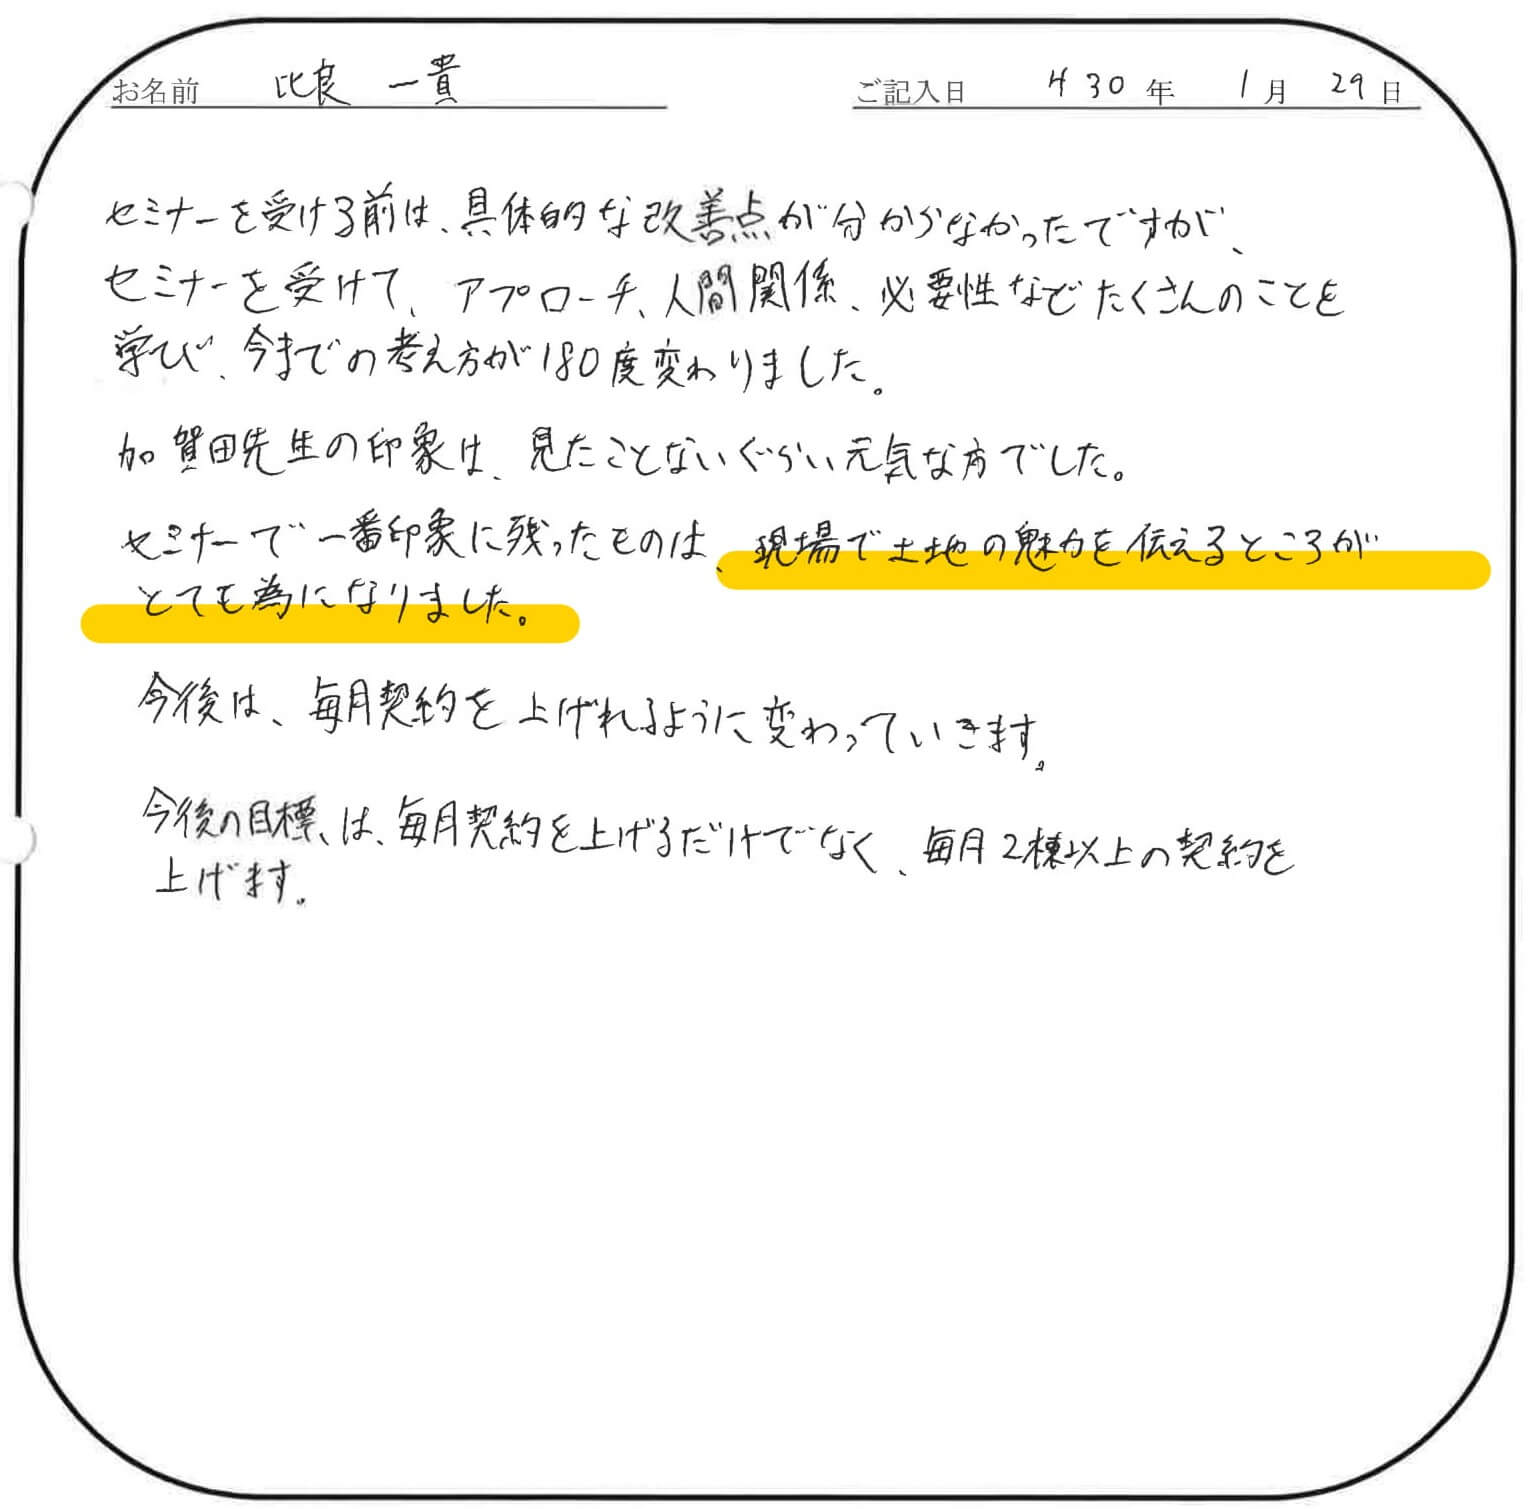 お名前 比良 一貴 ご記入日 H30年 1月 29日
セミナーを受ける前は、具体的な改善点が分からなかったですが、
セミナーを受けて、アプローチ、人間関係、必要性などたくさんのことを
学び、今までの考え方が180度変わりました。
加賀田先生の印象は、見たことないぐらい元気な方でした。
セミナーで一番印象に残ったものは、現場で土地の魅力を伝えるところが
とても為になりました。
今後は、毎月契約を上げれるように変わっていきます。
今後の目標、は、毎月契約を上げるだけでなく、毎月2棟以上の契約を
上げます。